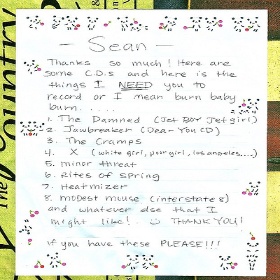 - Sean -
Thanks so much! Here are
some C.D.s and here is the
things I NEED you to
record or I mean burn baby
burn...
1. The Damned (Jet Boy Jet girl)
2. Jawbreaker (Dear You CD)
3. The Cramps
4. X (white girl, poor girl, los angeles....)
5. minor threat
6. Rites of Spring
7. Heatmizer
8. modest muse (interstate 8)
and whatever else that I
might like! THANK YOU!
if you have these PLEASE!!!
Country